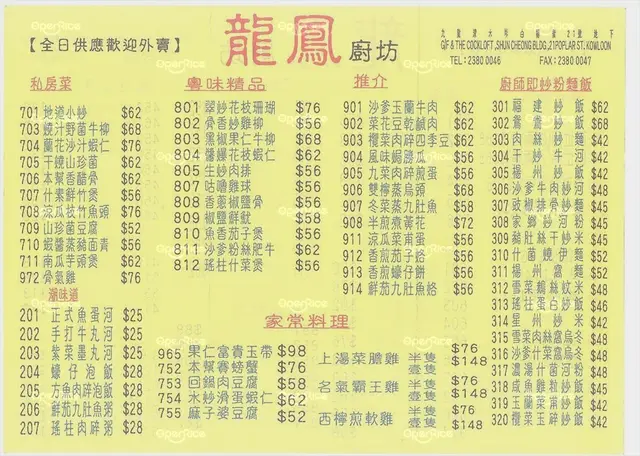 【全日供應歡迎外賣】
龍鳳
廚坊
九龍深水埗白楊街21號地下
G/F & THE COCKLOFT ,SHUN CHEONG BLDG.,21POPLAR ST.,KOWLOON
TEL:2380 0046 FAX:2380 0047
私房菜
701 地道小炒 $62
703 燒汁野菌牛柳 $68
704 蘭花沙汁蝦仁 $76
705 干燒山珍菌 $62
706 本幫香醋骨 $62
707 什素鮮竹煲 $56
708 涼瓜扙竹魚頭 $76
709 山珍豆腐 $52
710 蝦醬蒸豬面青 $56
711 南瓜芋頭煲 $62
972 骨氣雞 $76
潮味道
201 正式魚蛋河 $25
202 手打牛丸河 $25
203 紫菜墨丸河 $25
204 蠔仔泡飯 $28
205 方魚肉碎泡飯 $28
206 鮮茄九肚魚粥 $28
207 瑤柱肉碎粥 $28
粵味精品
801 翠炒花枝珊瑚 $76
802 骨香炒雞柳 $56
803 黑椒果仁牛柳 $68
804 醬爆花枝蝦仁 $62
805 生炒肉排 $56
807 咕嚕雞球 $56
808 香蔥椒鹽骨 $56
809 椒鹽鮮魷 $58
810 魚香茄子煲 $56
811 沙爹粉絲肥牛 $62
812 瑤柱什菜煲 $56
推介
901 沙爹玉蘭牛肉 $62
902 菜花豆乾鹹肉 $62
903 欖菜肉碎四季豆 $62
904 風味焗勝瓜 $56
905 九菜肉碎煎蛋 $56
906 雙檸蒸烏頭 $68
907 冬菜蒸九肚魚 $58
908 半煎煮黃花 $72
911 涼瓜菜甫蛋 $56
912 香煎茄子餅 $56
913 香煎蠔仔餅 $56
914 鮮茄九肚魚烙 $56
廚師即炒粉麵飯
301 福建炒飯 $62
302 鴛鴦炒飯 $68
303 肉絲炒麵 $42
304 干炒牛河 $42
305 揚州炒飯 $42
306 沙爹牛肉炒河 $48
307 豉椒排骨炒麵 $48
308 家鄉炒河粉 $45
309 豬肚絲干炒米 $45
310 什菌燒伊麵 $52
311 揚州窩麵 $52
312 雪菜鵝絲炆米 $48
313 瑤柱蛋白炒飯 $46
314 星州炒米 $42
315 雪菜肉絲窩烏冬 $48
316 沙爹什菜窩烏冬 $48
317 濃湯什菌河粉 $48
318 咸魚雞粒炒飯 $45
319 玉蘭菜甫炒飯 $42
320 欖菜玉碎炒飯 $42
家常料理
965 果仁富貴玉帶 $98
752 本幫賽螃蟹 $76
753 回鍋肉豆腐 $58
754 水炒滑蛋蝦仁 $62
755 麻子婆豆腐 $52
上湯菜膽雞 半隻 $76
壹隻 $148
名氣霸王雞 半隻 $76
壹隻 $148
西檸煎軟雞 半隻 $76
壹隻 $148